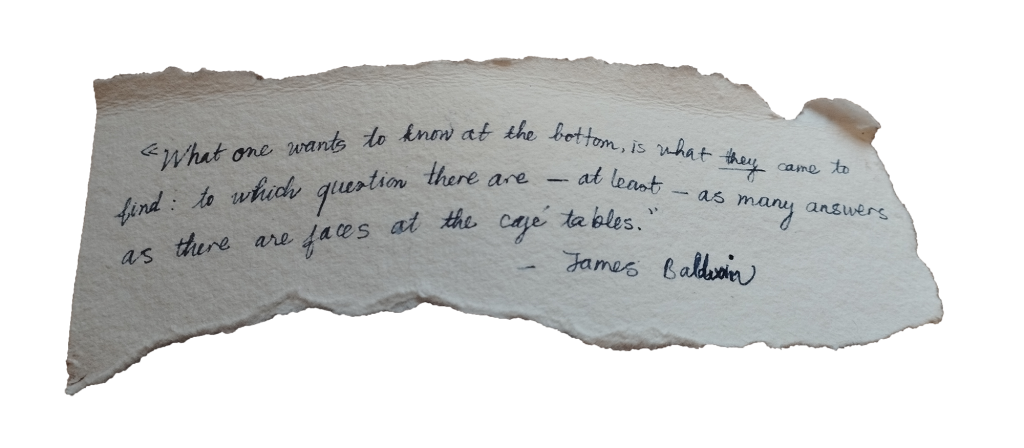 «What one wants to know at the bottom, is what they came to
find: to which question there are — at least — as many answers
as there are faces at the café tables.”
- James Baldwin